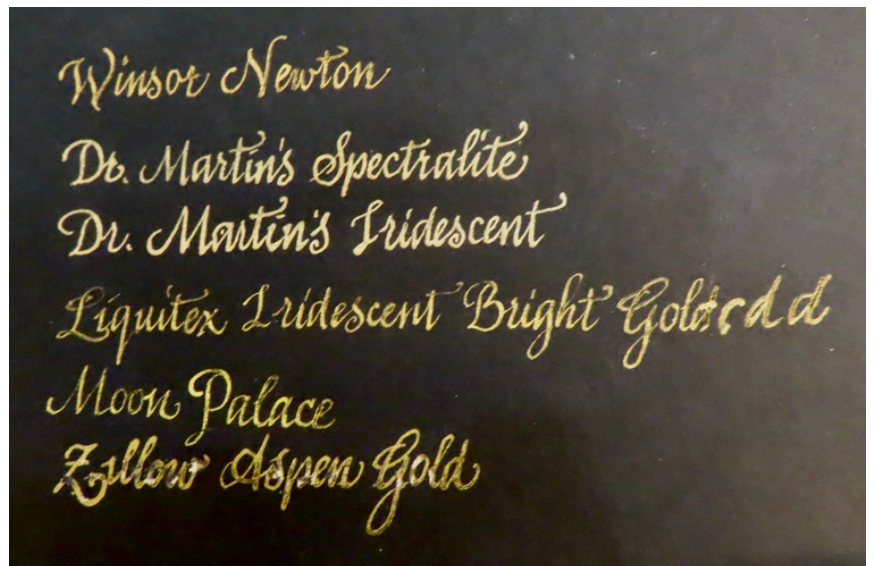 Winsor Newton
Dr. Martin's Spectralite
Dr. Martin's Iridescent
Liquitex Iridescent Bright Gold r d d
Moon Palace
Zillow Aspen Gold